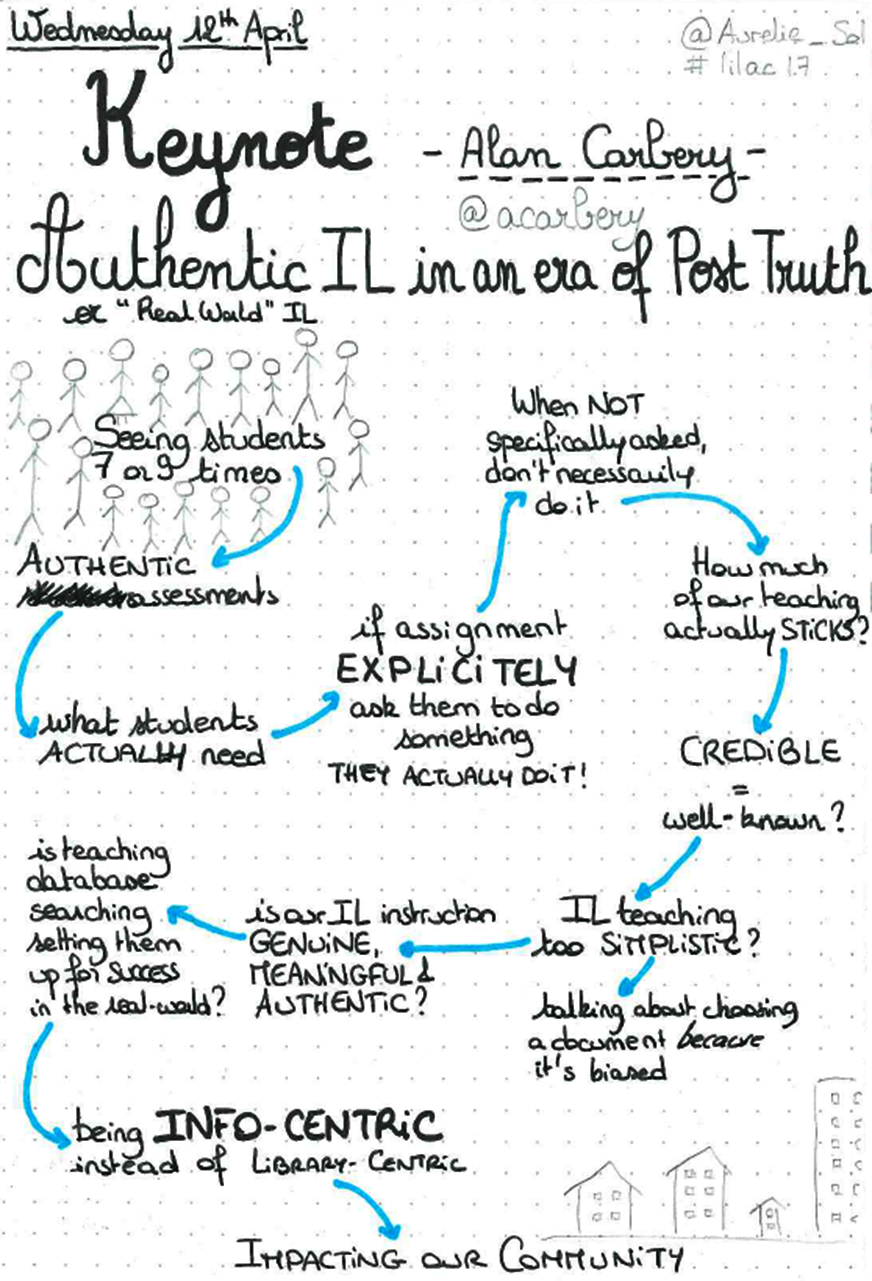 Wednesday 12th April
@Aurelie_Sol
#lilac17
Keynote - Alan Carbery -
@acarbery
Authentic IL in an era of Post Truth
or "Real World" IL
Seeing students
7 or 9 times
AUTHENTiC
assessments
what students
ACTUALLY need
if assignment
EXPLiCiTELY
ask them to do
something
THEY ACTUALLY DO iT!
When NOT
specifically asked,
don't necessarily
do it
How much
of our teaching
actually STiCKS?
CREDiBLE
=
well-known?
IL teaching
too SiMPLiSTiC?
talking about choosing
a document because
it's biased
is our IL instruction
GENUiNE,
MEANiNGFUL &
AUTHENTiC?
is teaching
database
searching
setting them
up for success
in the real-world?
being INFO-CENTRiC
instead of LiBRARY-CENTRiC
IMPACTiNG OUR COMMUNiTY